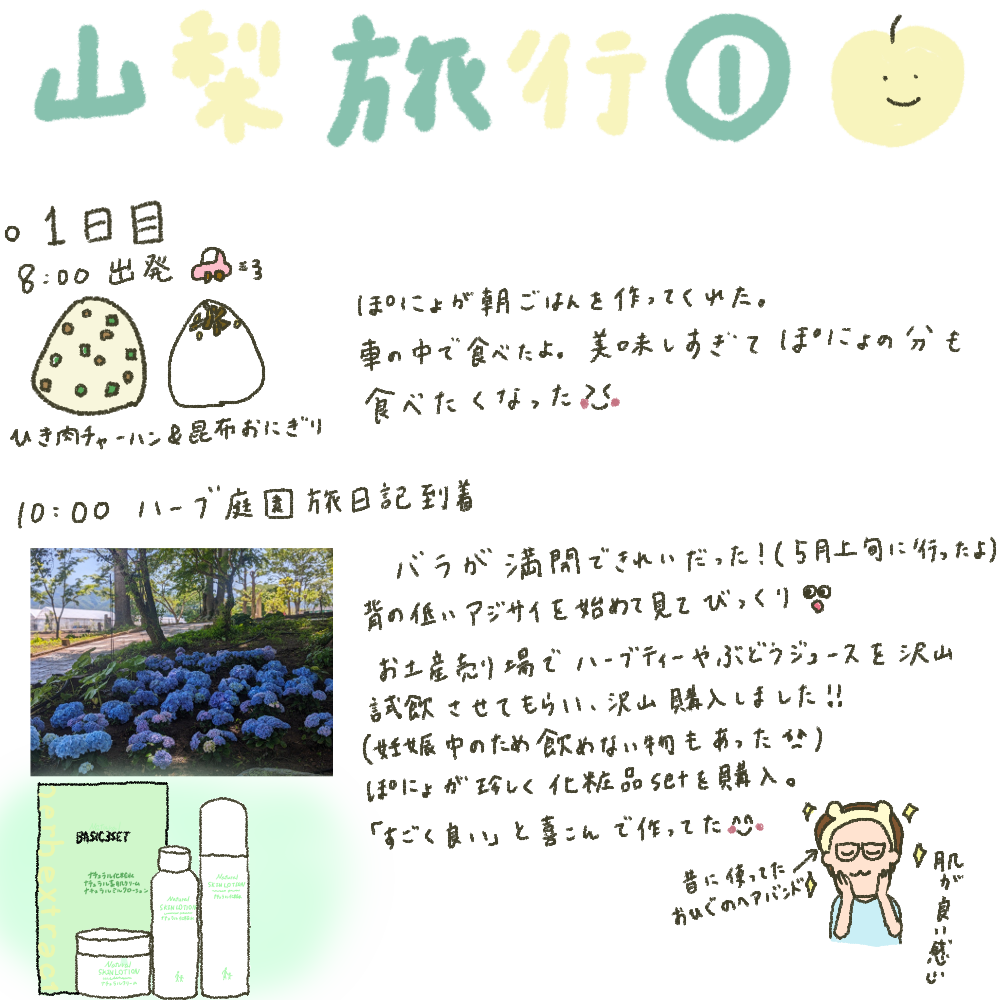 山梨旅行①
。1日目
8:00 出発
ひき肉チャーハン&昆布おにぎり
ぽにょが朝ごはんを作ってくれた。
車の中で食べたよ。美味しすぎてぽにょの分も
食べたくなった
10:00 ハーブ庭園旅日記到着
バラが満開できれいだった!(5月上旬に行ったよ)
背の低いアジサイを始めて見てびっくり
お土産売り場でハーブティーやぶどうジュースを沢山
試飲させてもらい、沢山購入しました!!
(妊娠中のため飲めない物もあった)
ぽにょが珍しく化粧品setを購入。
「すごく良い」と喜こんで作ってた
herb extract
BASIC3SET
ナチュラル化粧水
ナチュラル美肌クリーム
ナチュラルミルクローション
Natural
SKIN LOTION
ナチュラルクリーム
Natural
SKIN LOTION
Natural
SKIN LOTION
昔に使ってた
おひぐのヘアバンド
肌が良い感じ